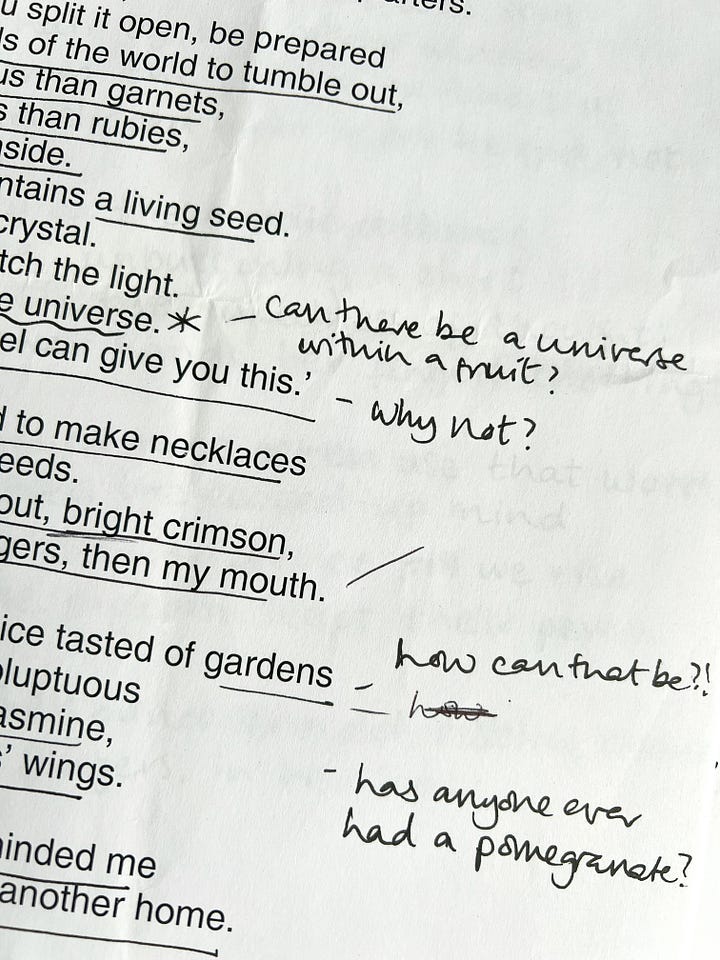 u split it open, be prepared
ls of the world to tumble out,
us than garnets,
s than rubies,
nside.
ntains a living seed.
crystal.
tch the light.
e universe. * – Can there be a universe
within a fruit?
el can give you this.’
– why not?
d to make necklaces
eeds.
out, bright crimson,
gers, then my mouth.
ice tasted of gardens
how can that be?!
– how
oluptuous
asmine,
’ wings.
– has anyone ever
had a pomegranate?
inded me
another home.